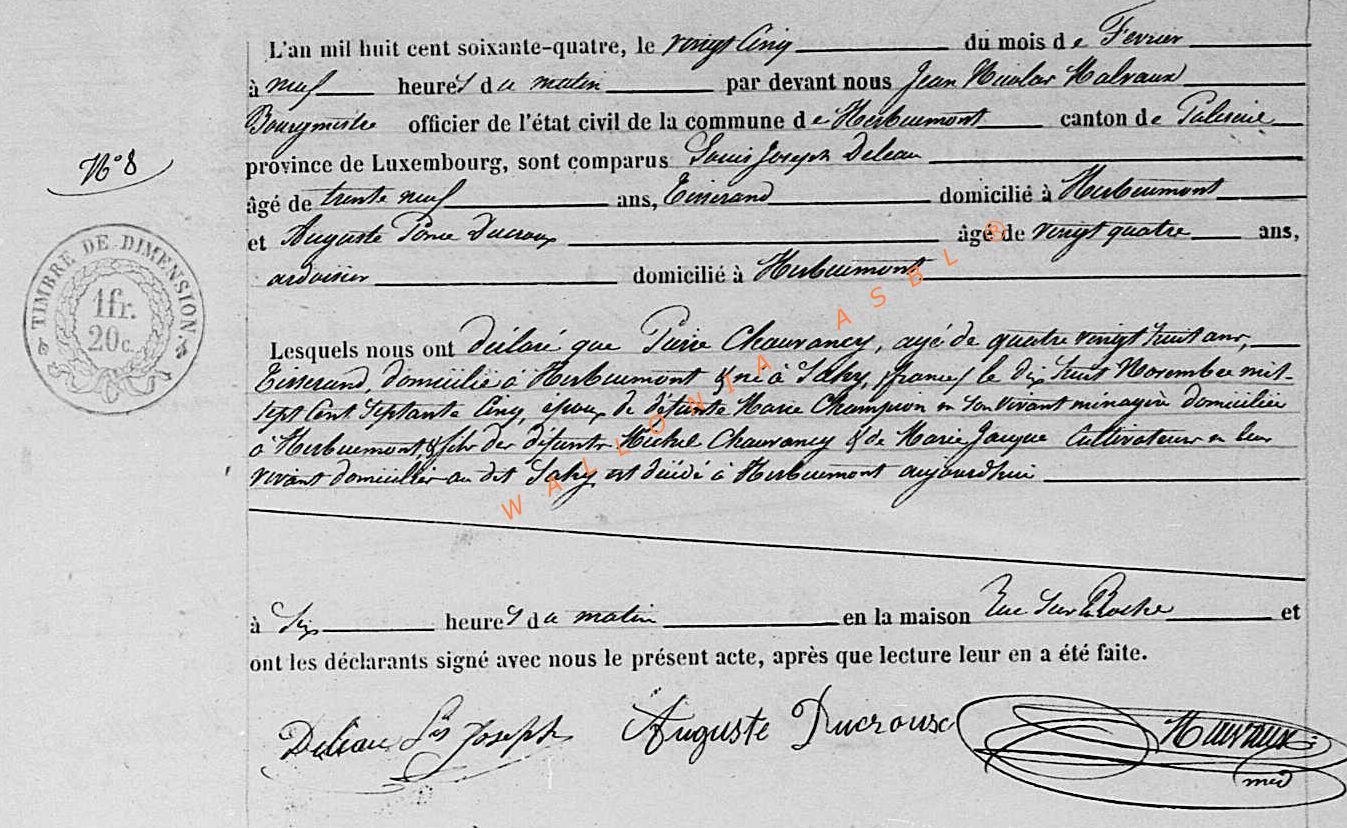 L'an mil huit cent soixante-quatre, le vingt Cinq du mois de Fevrier
à neuf heures du matin par devant nous Jean Nicolas Malvaux
Bourgmestre officier de l'état civil de la commune de Herbeumont canton de Paliseul
province de Luxembourg, sont comparus Louis Joseph Deleau
N° 8
âgé de trente neuf ans, Tisserand domicilié à Herbeumont
et Auguste Ponce Ducroux âgé de vingt quatre ans,
ardoisier domicilié à Herbeumont
TIMBRE DE DIMENSION.
1 fr.
20 c.
Lesquels nous ont déclaré que Pierre Chauvancy, agé de quatre vingt huit ans,
Tisserand, domicilié à Herbeumont & né à Sahy, (france) le dix huit Novembre mil-
sept Cent Septante Cinq, époux de défunte Marie Champion en son vivant ménagère domiciliée
à Herbeumont, & fils des défunts Michel Chauvancy & de Marie Jacque Cultivateurs en leur
vivant domiciliés au dit Sahy est décédé à Herbeumont aujourdhui
WALLONIA ASBL ®
à Six heures du matin en la maison Rue Sur la Roche et
ont les déclarants signé avec nous le présent acte, après que lecture leur en a été faite.
Deleau Ls Joseph Auguste Ducrouse Malvaux